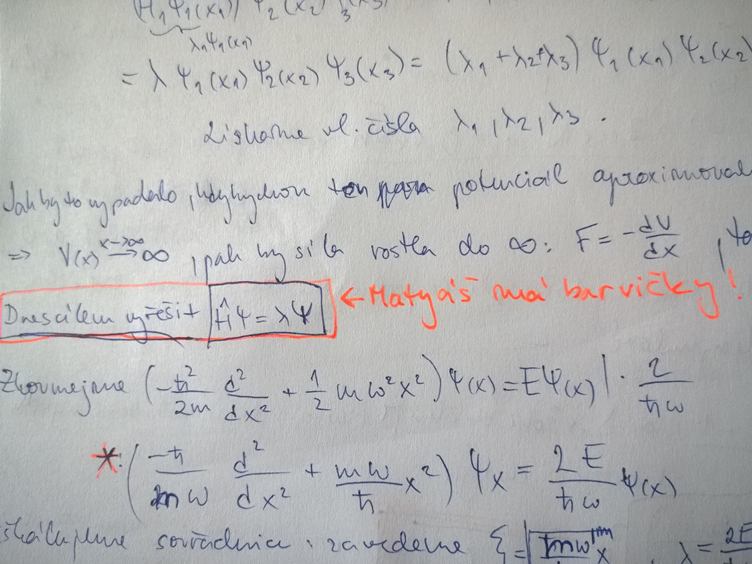 H₁Ψ₁(x₁)) Ψ₂(x₂) Ψ₃(x₃)
λ₁Ψ₁(x₁)
= λ Ψ₁(x₁) Ψ₂(x₂) Ψ₃(x₃) = (λ₁ + λ₂ + λ₃) Ψ₁(x₁) Ψ₂(x₂)
Získáme vl. čísla λ₁, λ₂, λ₃.
Jak by to vypadalo, kdybychom ten potenciál aproximoval
⇒ V(x) x→∞ → ∞, pak by síla rostla do ∞: F = -dV/dx, to
Dnes cílem vyřešit Ĥψ = λψ ← Matyáš má barvičky!
(-ħ²/2m d²/dx² + 1/2 mω²x²) Ψ(x) = EΨ(x) | · 2/ħω
*: (-ħ/mω d²/dx² + mω/ħ x²) Ψx = 2E/ħω Ψ(x)
souřadnice: zavedeme ξ = √mω x, λ = 2E